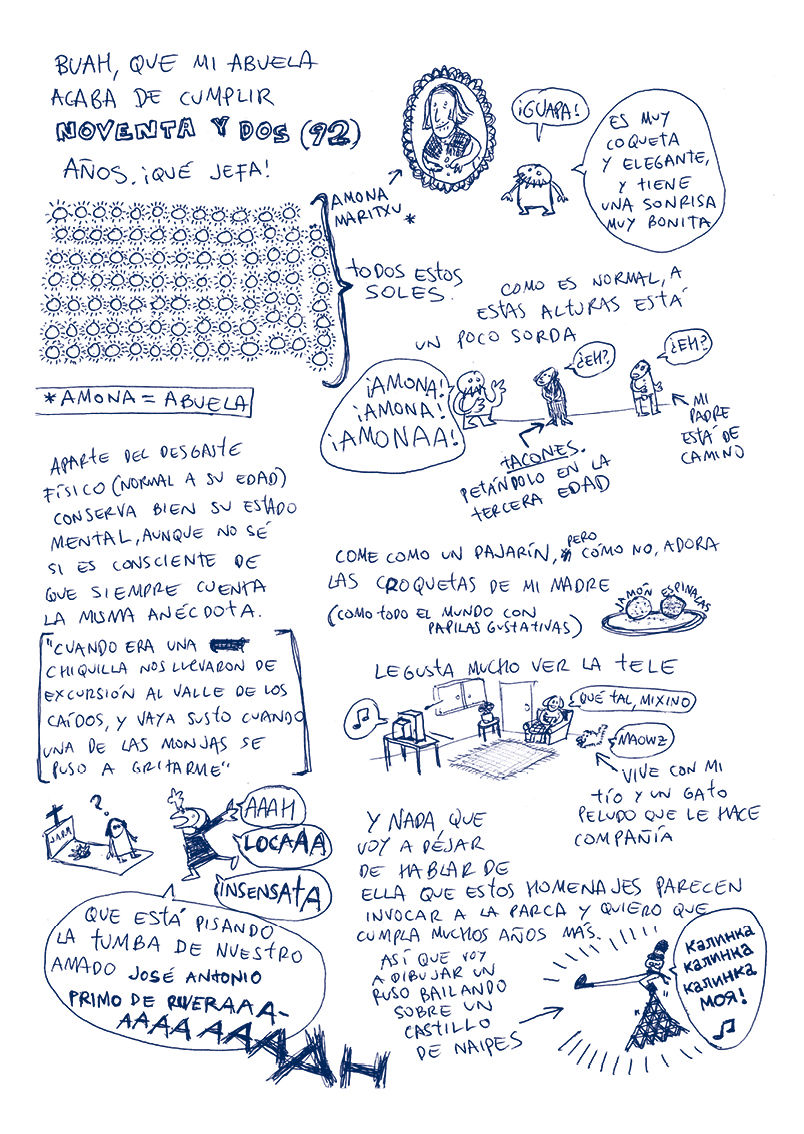 BUAH, QUE MI ABUELA
ACABA DE CUMPLIR
NOVENTA Y DOS (92)
AÑOS. ¡QUÉ JEFA!
AMONA
MARITXU *
¡GUAPA!
ES MUY
COQUETA
Y ELEGANTE,
Y TIENE
UNA SONRISA
MUY BONITA
TODOS ESTOS
SOLES.
*AMONA = ABUELA
COMO ES NORMAL, A
ESTAS ALTURAS ESTÁ
UN POCO SORDA
¡AMONA!
¡AMONA!
¡AMONAA!
¿EH?
¿EH?
MI
PADRE
ESTÁ DE
CAMINO
TACONES.
PETÁNDOLO EN LA
TERCERA EDAD
APARTE DEL DESGASTE
FÍSICO (NORMAL A SU EDAD)
CONSERVA BIEN SU ESTADO
MENTAL, AUNQUE NO SÉ
SI ES CONSCIENTE DE
QUE SIEMPRE CUENTA
LA MISMA ANÉCDOTA.
"CUANDO ERA UNA
CHIQUILLA NOS LLEVARON DE
EXCURSIÓN AL VALLE DE LOS
CAÍDOS, Y VAYA SUSTO CUANDO
UNA DE LAS MONJAS SE
PUSO A GRITARME"
J.A.P.R.
?
AAAH
LOCAAA
INSENSATA
QUE ESTÁ PISANDO
LA TUMBA DE NUESTRO
AMADO JOSÉ ANTONIO
PRIMO DE RIVERAAA-
AAAAAAAAAH
COME COMO UN PAJARÍN, PERO CÓMO NO, ADORA
LAS CROQUETAS DE MI MADRE
(COMO TODO EL MUNDO CON
PAPILAS GUSTATIVAS)
JAMÓN ESPINACAS
LE GUSTA MUCHO VER LA TELE
QUÉ TAL, MIXINO
MAOWZ
VIVE CON MI
TÍO Y UN GATO
PELUDO QUE LE HACE
COMPAÑÍA
Y NADA, QUE
VOY A DEJAR
DE HABLAR DE
ELLA QUE ESTOS HOMENAJES PARECEN
INVOCAR A LA PARCA Y QUIERO QUE
CUMPLA MUCHOS AÑOS MÁS.
ASÍ QUE VOY
A DIBUJAR UN
RUSO BAILANDO
SOBRE UN
CASTILLO
DE NAIPES
КАЛИНКА
КАЛИНКА
КАЛИНКА
МОЯ!